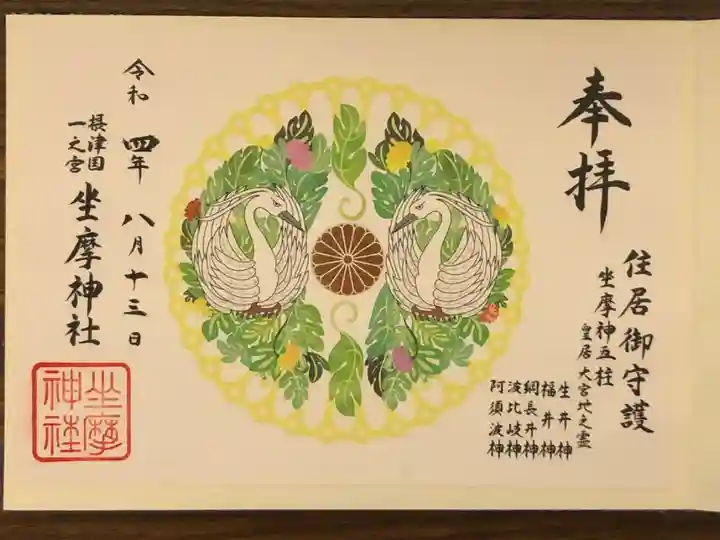 奉拝
住居御守護
坐摩神五柱
皇居大宮地之霊
生井神
福井神
綱長井神
波比岐神
阿須波神
令和四年八月十三日
摂津国
一之宮
坐摩神社
坐摩
神社